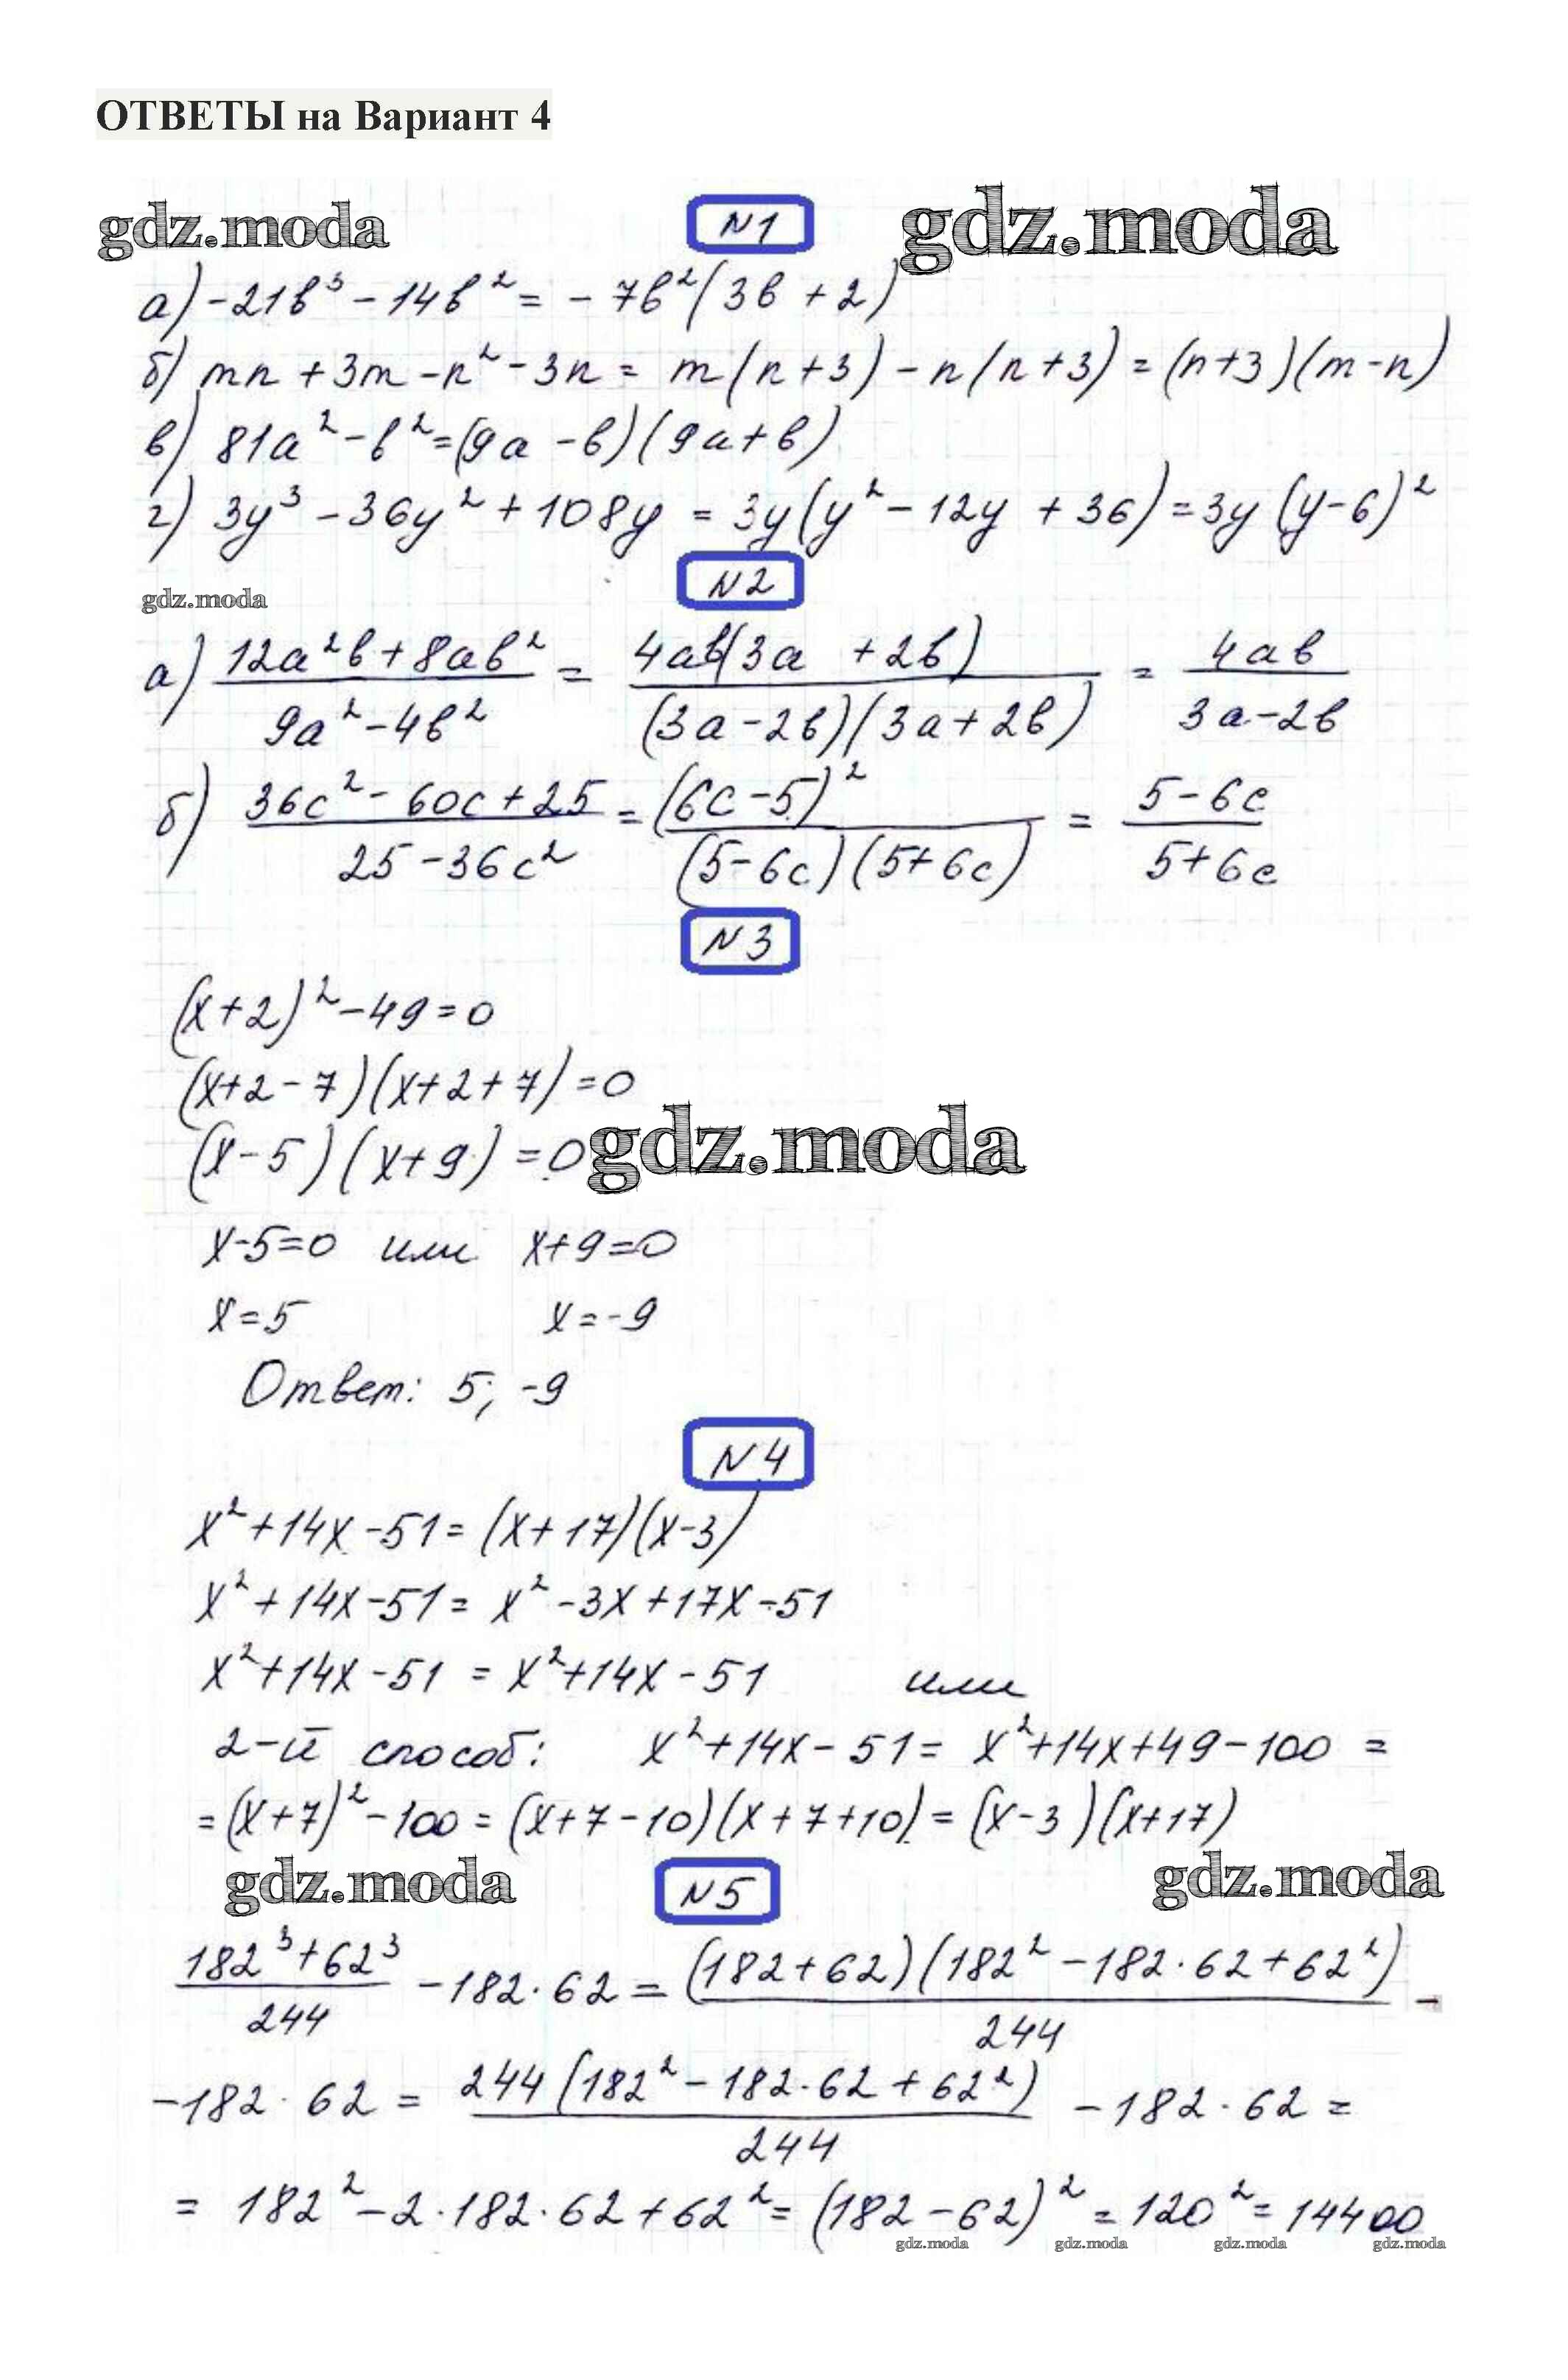 ОТВЕТЫ на Вариант 4
gdz.moda N1 gdz.moda
а) -21b³ - 14b² = -7b²(3b + 2)
б) mn + 3m - n² - 3n = m(n+3) - n(n+3) = (n+3)(m-n)
в) 81a² - b² = (9a - b)(9a + b)
г) 3y³ - 36y² + 108y = 3y(y² - 12y + 36) = 3y(y-6)²
N2
gdz.moda
а) (12a²b + 8ab²)/(9a² - 4b²) = 4ab(3a + 2b)/((3a - 2b)(3a + 2b)) = 4ab/(3a - 2b)
б) (36c² - 60c + 25)/(25 - 36c²) = (6c - 5)²/((5 - 6c)(5 + 6c)) = (5 - 6c)/(5 + 6c)
N3
(x+2)² - 49 = 0
(x+2-7)(x+2+7) = 0
(x-5)(x+9) = 0 gdz.moda
x-5=0 или x+9=0
x=5 x=-9
Ответ: 5; -9
N4
x² + 14x - 51 = (x+17)(x-3)
x² + 14x - 51 = x² - 3x + 17x - 51
x² + 14x - 51 = x² + 14x - 51 или
2-й способ: x² + 14x - 51 = x² + 14x + 49 - 100 =
= (x+7)² - 100 = (x+7-10)(x+7+10) = (x-3)(x+17)
gdz.moda N5 gdz.moda
(182³ + 62³)/244 - 182·62 = (182+62)(182² - 182·62 + 62²)/244 -
-182·62 = 244(182² - 182·62 + 62²)/244 - 182·62 =
= 182² - 2·182·62 + 62² = (182 - 62)² = 120² = 14400
gdz.moda gdz.moda gdz.moda gdz.moda